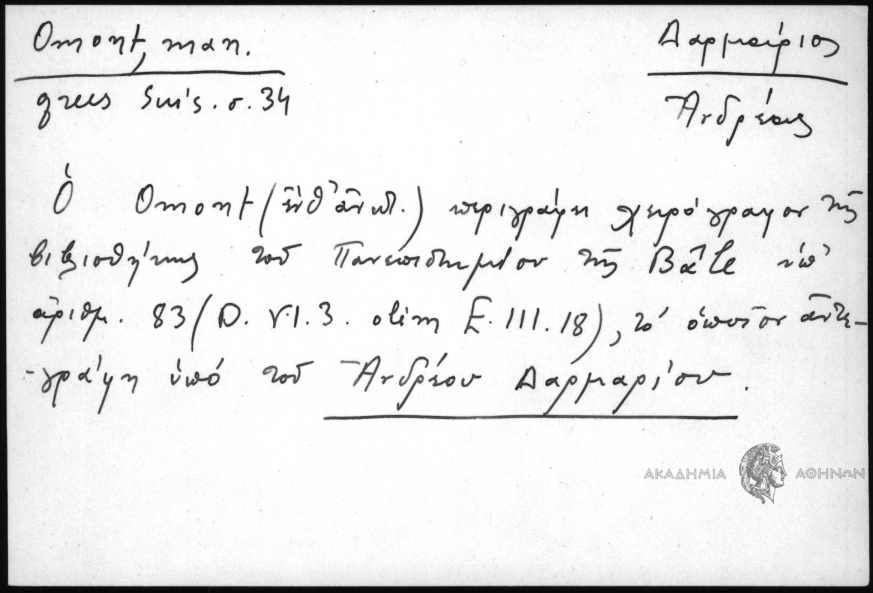 Omont, man.
grecs Suis. σ. 34
Δαρμάριος
Ἀνδρέας
Ὁ Omont (ἔνθ' ἀνωτ.) περιγράφει χειρόγραφον τῆς
βιβλιοθήκης τοῦ Πανεπιστημίου τῆς Bâle ὑπ'
ἀριθμ. 83 (D. V.I.3. olim E.III.18), τὸ ὁποῖον ἀντε-
-γράφη ὑπὸ τοῦ Ἀνδρέου Δαρμαρίου.
ΑΚΑΔΗΜΙΑ ΑΘΗΝΩΝ